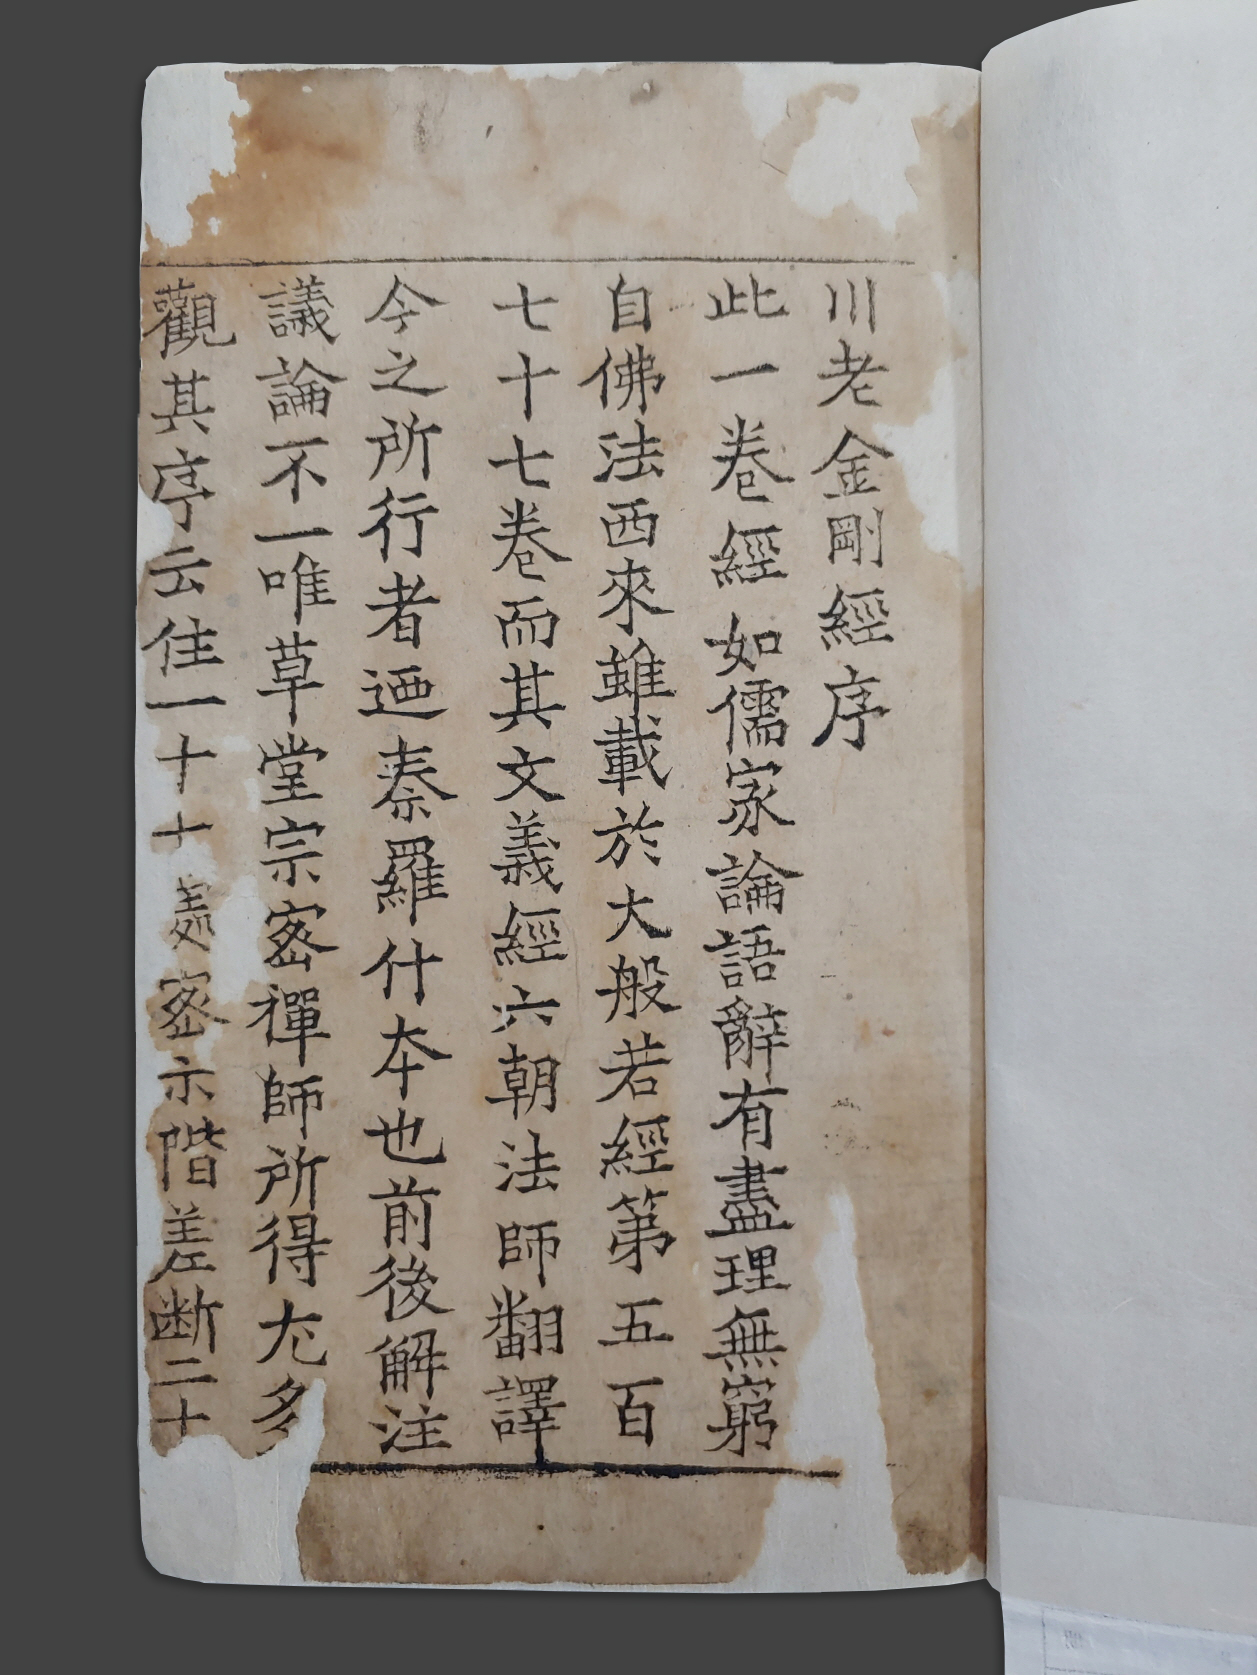 川老金剛經序
此一卷經如儒家論語辭有盡理無窮
自佛法西來雖載於大般若經第五百
七十七卷而其文義經六朝法師翻譯
今之所行者廼秦羅什本也前後解注
議論不一唯草堂宗宻禪師所得尤多
觀其序云住一十宻示階差断二十